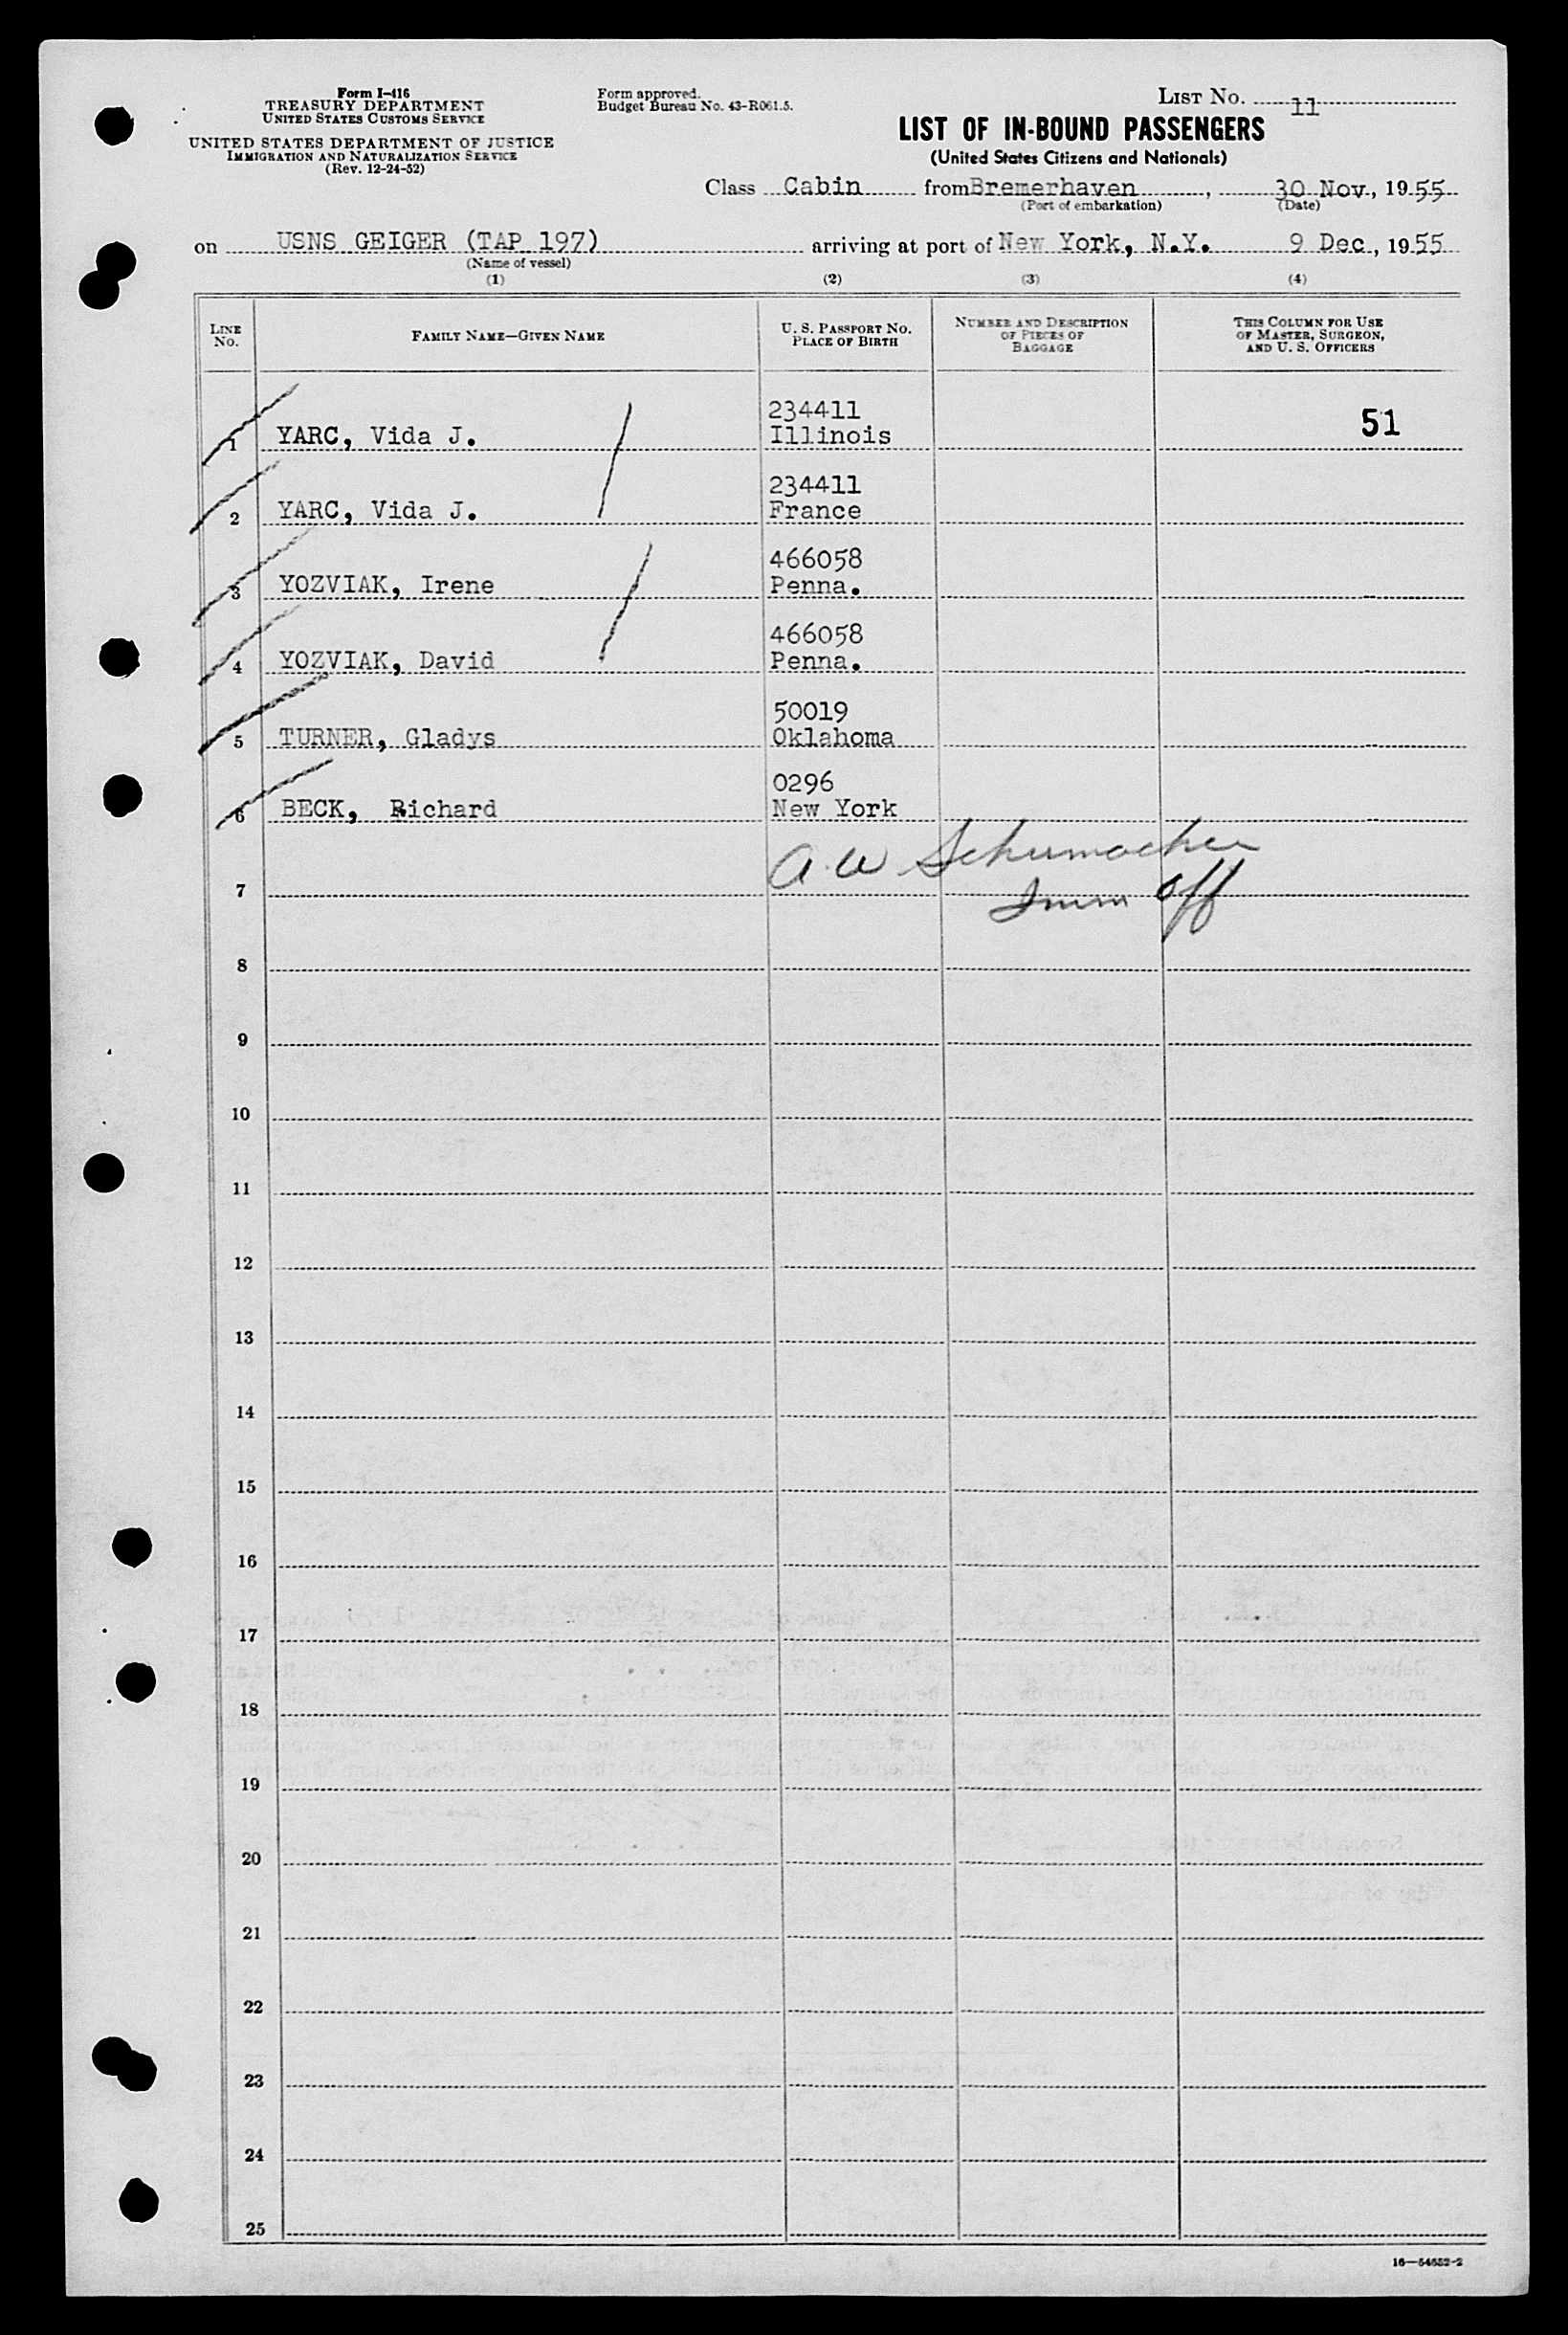 Form I-416
TREASURY DEPARTMENT
UNITED STATES CUSTOMS SERVICE
UNITED STATES DEPARTMENT OF JUSTICE
IMMIGRATION AND NATURALIZATION SERVICE
(Rev. 12-24-52)
Form approved.
Budget Bureau No. 43-R061.5.
LIST No. 11
LIST OF IN-BOUND PASSENGERS
(United States Citizens and Nationals)
Class Cabin from Bremerhaven, 30 Nov, 1955
(Port of embarkation) (Date)
on USNS GEIGER (TAP 197) arriving at port of New York, N.Y. 9 Dec, 1955
(Name of vessel)
(1) (2) (3) (4)
LINE NO.
FAMILY NAME—GIVEN NAME
U. S. PASSPORT NO.
PLACE OF BIRTH
NUMBER AND DESCRIPTION
OF PIECES OF
BAGGAGE
THIS COLUMN FOR USE
OF MASTER, SURGEON,
AND U. S. OFFICERS
234411
1 YARC, Vida J. Illinois 51
234411
2 YARC, Vida J. France
466058
3 YOZVIAK, Irene Penna.
466058
4 YOZVIAK, David Penna.
50019
5 TURNER, Gladys Oklahoma
0296
6 BECK, Richard New York
A. W Schumacher
7 Imm Off
8
9
10
11
12
13
14
15
16
17
18
19
20
21
22
23
24
25
16—54682-2